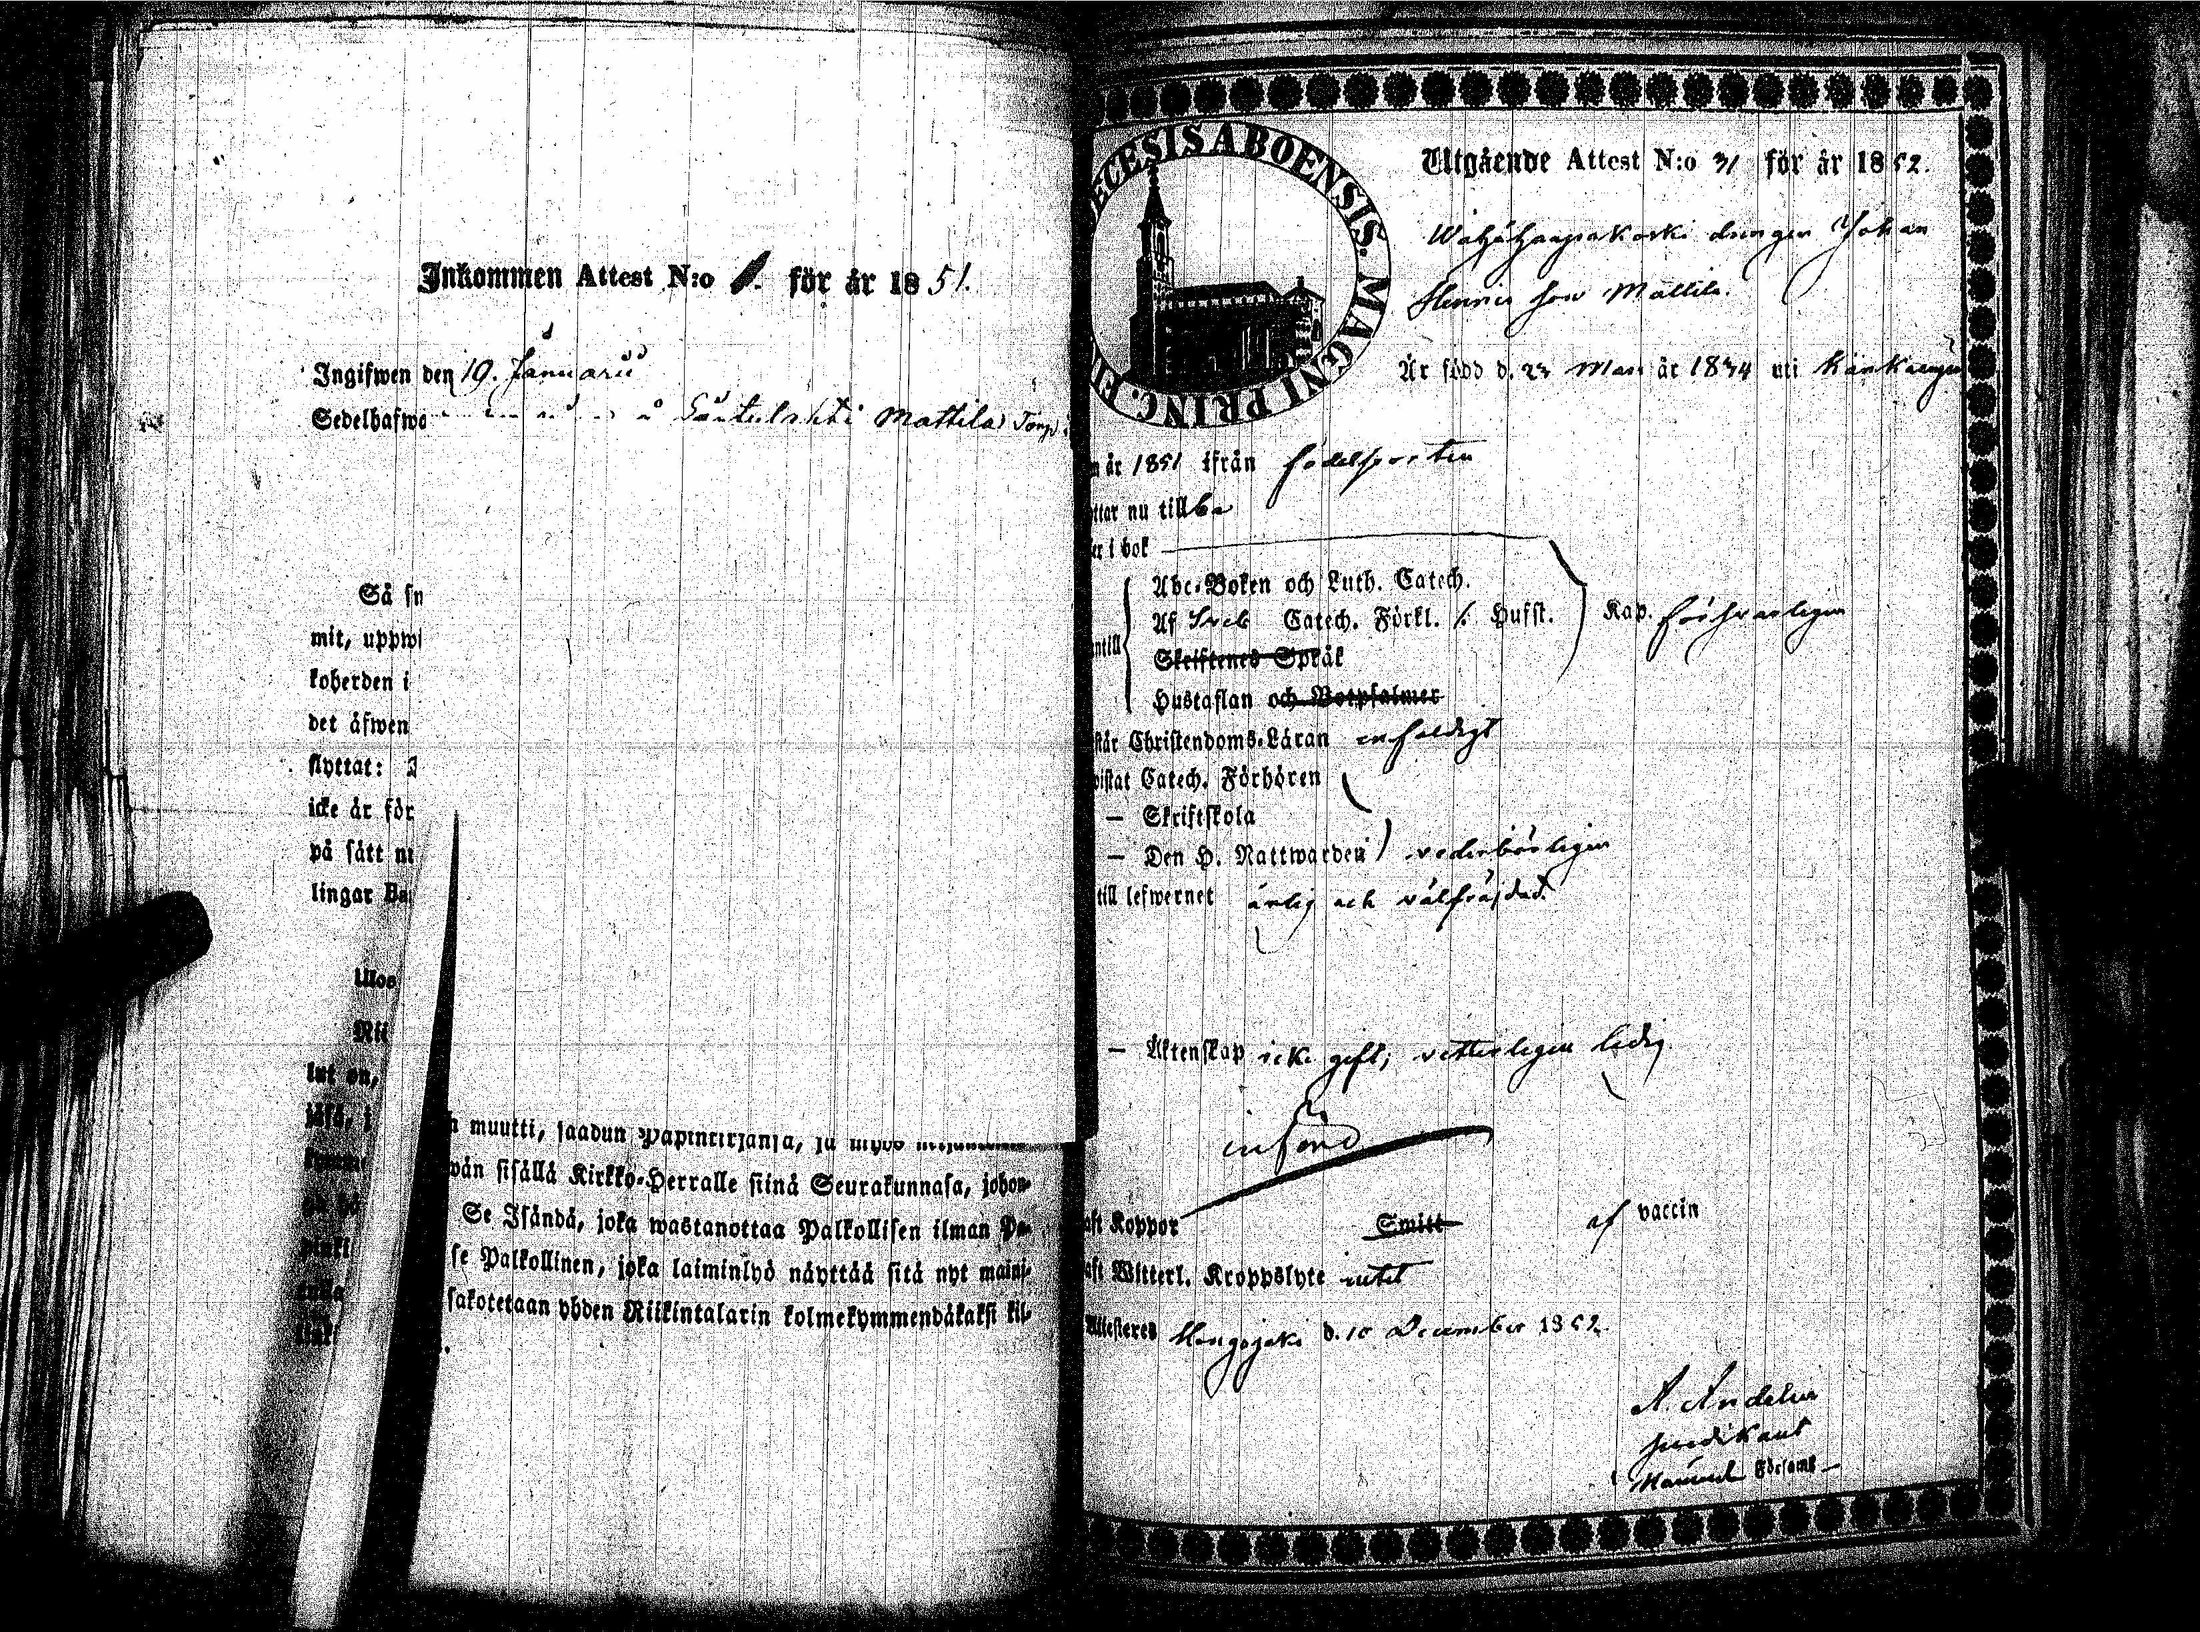 Inkommen Attest N:o 1. för år 1851.
Ingifwen den 19. Januarii
Sedelhafwa å Mattila Torp
Så sn
mit, uppwi
koherden i
det åfwen
flyttat:
icke är för
på sått m
lingar Ba
Ulos
Rii
lut on,
jåså, j
n muutti, saadun Papinkirjansa, ja myös
wån sisållå Kirkko-Herralle siinå Seurakunnasa, johon-
Se Isåndå, joka wastanottaa Palkollisen ilman Pa-
se Palkollinen, joka laiminlyö nåyttåå sitå nyt maini-
sakotetaan yhden Riikintalarin kolmekymmendåkaksi kil-
ECESIS ABOENSIS. MAGNI PRINC. FI
Utgående Attest N:o 31 för år 1852.
drängen Johan
Henric son Mattila.
Är född d. 23 Mars år 1834 uti Kankaanpää
n år 1851 ifrån födelseorten
ttar nu tillba
er i bok
Abc-Boken och Luth. Catech.
Af Sveb Catech. Förkl. /. Hufst. Kap. försvarligen
ntill
Skriftenes Språk
Hustaflan och Botpsalmer
står Christendoms-Läran enfaldigt
wistat Catech. Förhören
— Skriftskola
— Den H. Nattwarden vederbörligen
till lefwernet ärlig och välfräjdad.
— Äktenskap icke gift; vetterligen ledig.
införd
aft Koppor Smitt af vaccin
aft Witterl. Kroppslyte intet
Attesteres Hongojoki d. 10 December 1852.
A. Andelin
predikant
Församl